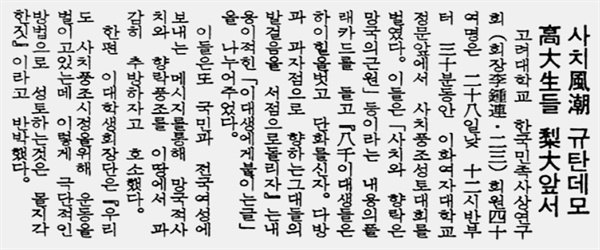 사치風潮 규탄데모
高大生들 梨大앞서
고려대학교 한국민족사상연구
회(회장李鍾連·二三)회원四十
여명은 二十八일낮 十二시반부
터 三十분동안 이화여자대학교
정문앞에서 사치풍조성토대회를
벌였다. 이들은「사치와 향락은
망국의근원」등이라는 내용의플
래카드를 들고『八千이대생들은
하이힐을벗고 단화를신자. 다방
과 과자점으로 향하는그대들의
발걸음을 서점으로돌리자』는내
용이적힌「이대생에게붙이는글」
을 나누어주었다.
이들은또 국민과 전국여성에
보내는 메시지를통해 망국적사
치와 향락풍조를 이땅에서 과
감히 추방하자고 호소했다.
한편 이대학생회장단은『우리
도 사치풍조시정을위해 운동을
벌이고있는데 이렇게 극단적인
방법으로 성토하는것은 몰지각
한짓』이라고 반박했다.